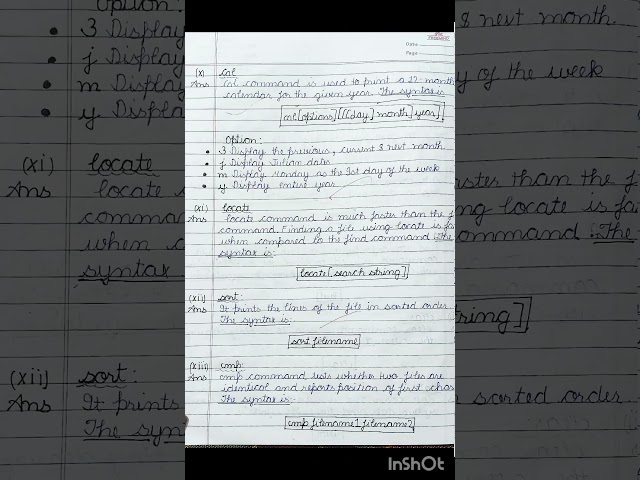 Date
Page
(x) cal
Ans Cal command is used to print a 12-month
calendar for the given year. The syntax is
cal[options][[[day] month] year]
Option:
• 3 Display the previous, current & next month
• j Display Julian dates
• m Display Monday as the 1st day of the week
• y Display entire year
(xi) locate
Ans locate command is much faster than the f
command. Finding a file using locate is fa
when compared to the find command. The
syntax is:
locate[search string]
(xii) sort:
Ans It prints the lines of the file in sorted order
The syntax is:
sort filename
(xiii) cmp:
Ans cmp command tests whether two files are
identical and reports position of first char
The syntax is:-
cmp filename1 filename2
InShOt